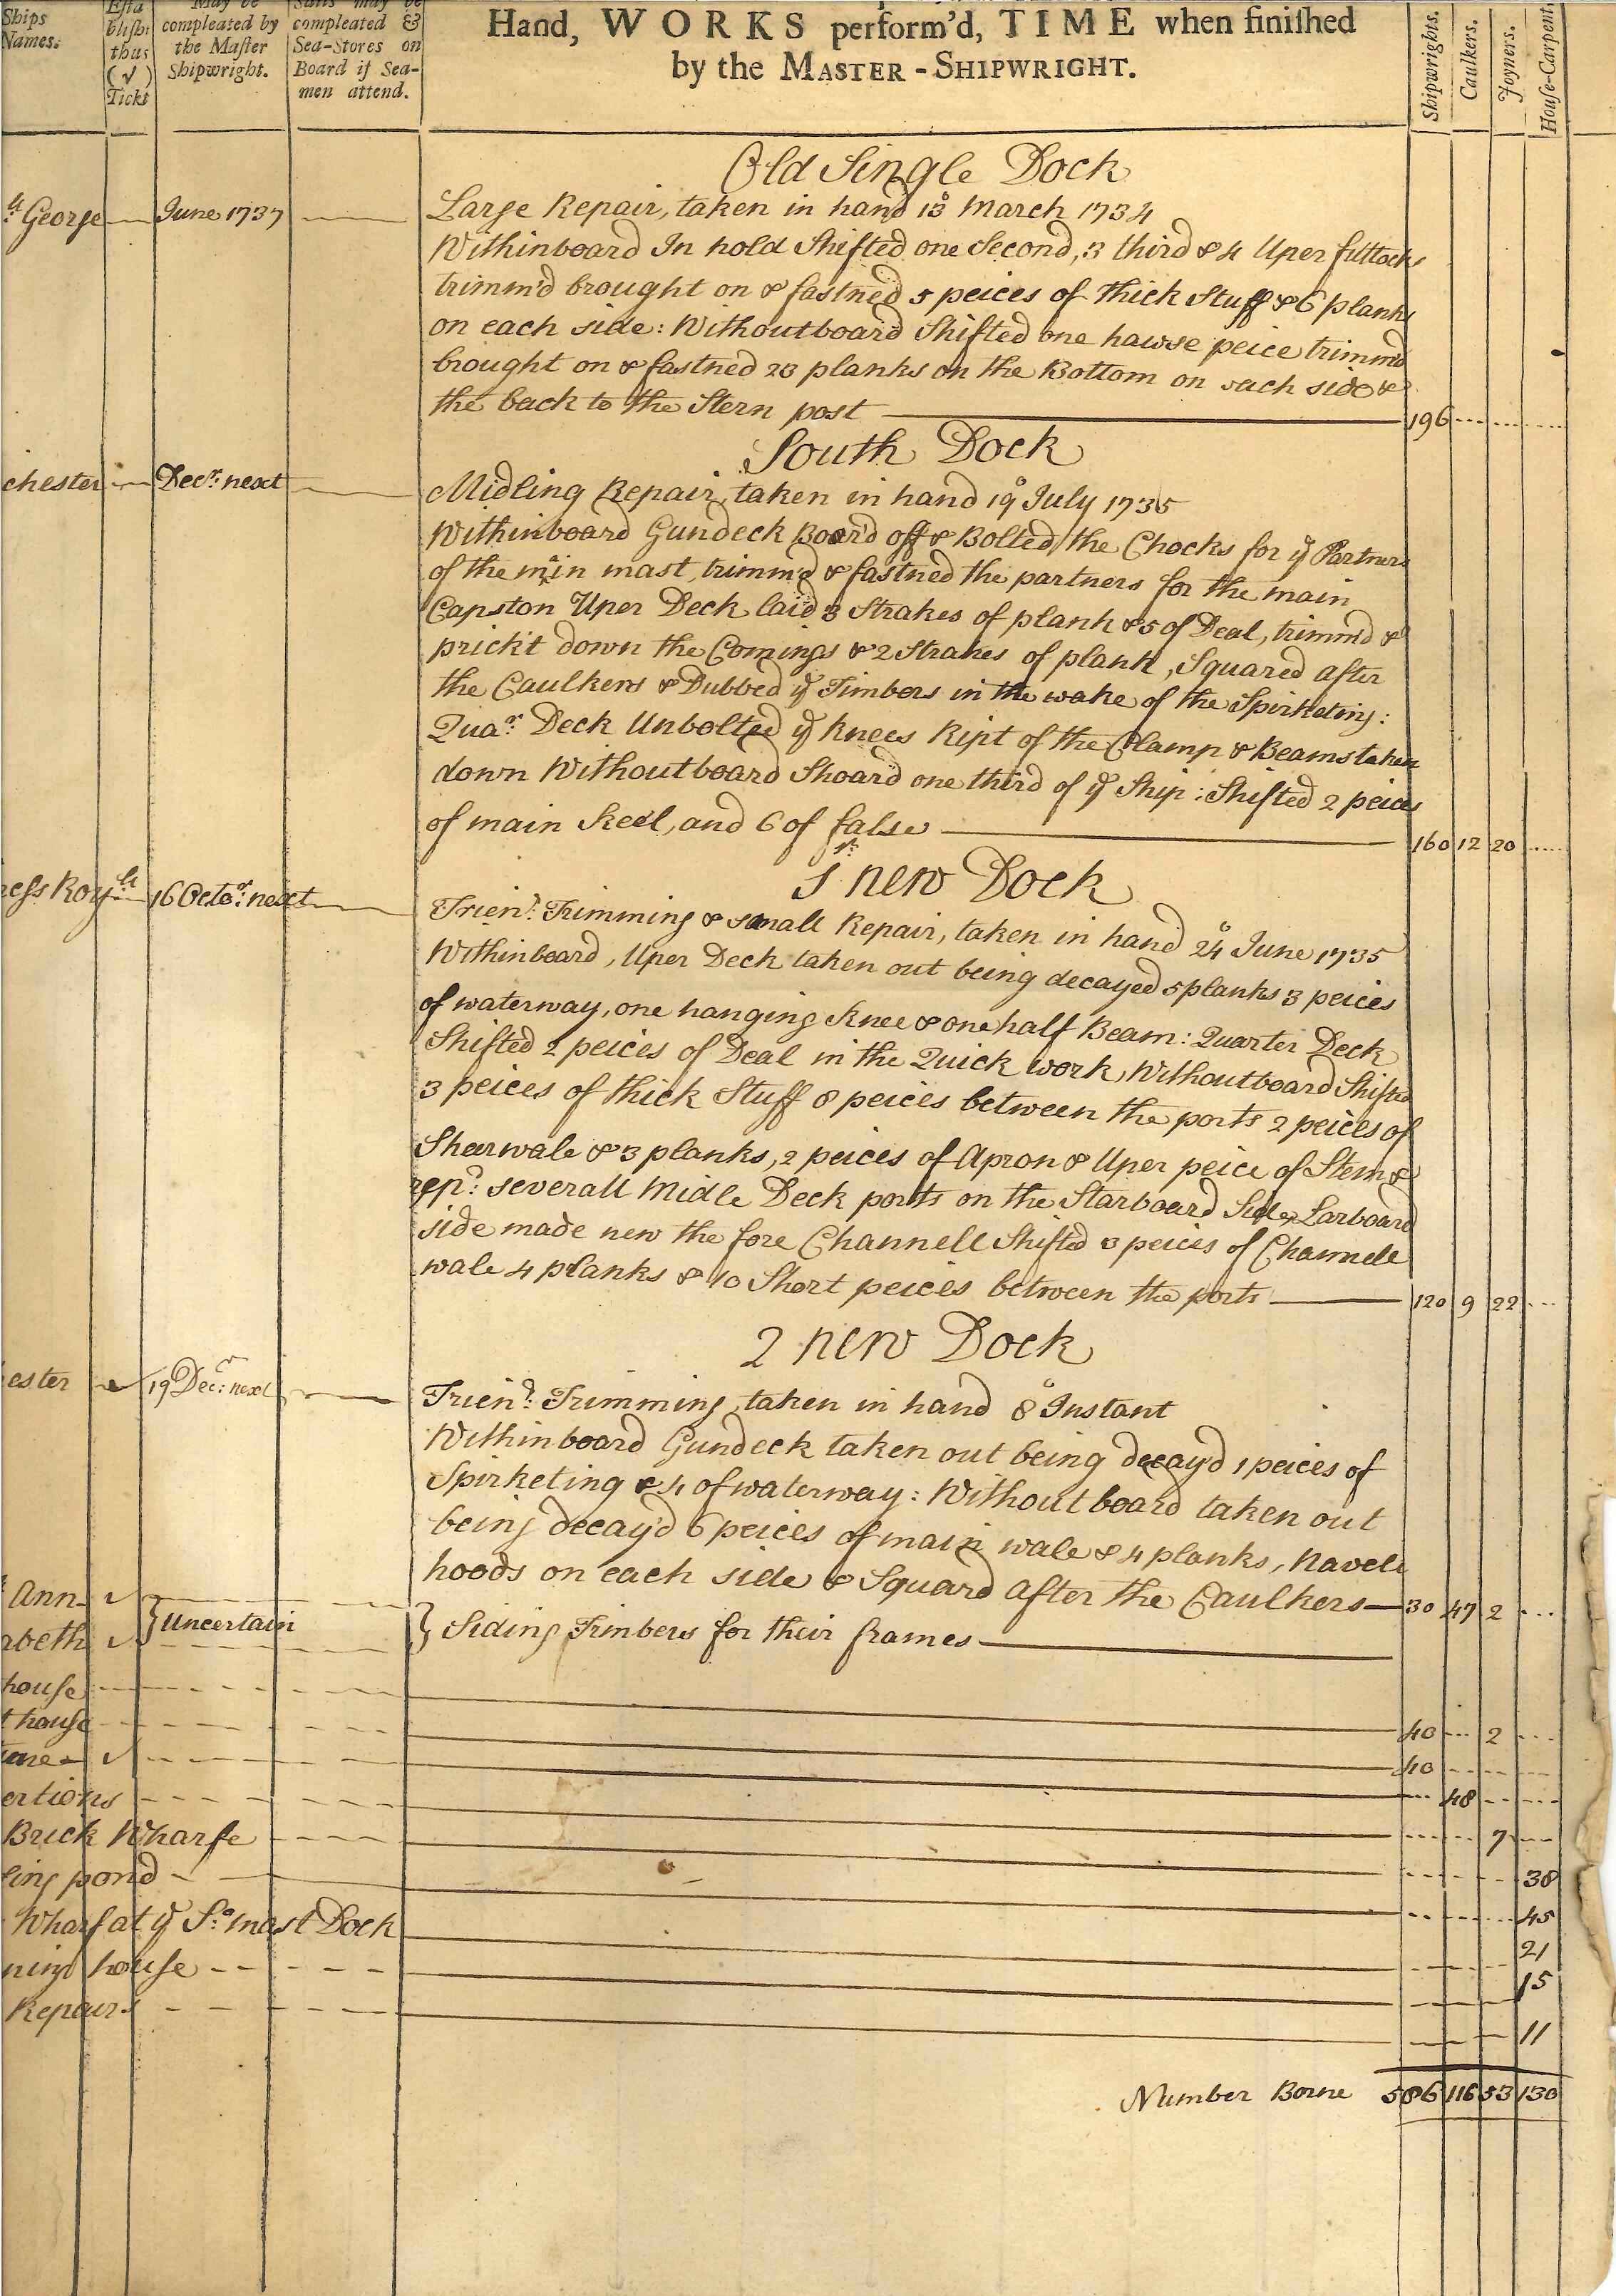 Ships Names.
Esta blisht thus (√) Tickt
May be compleated by the Master Shipwright.
Sails may be compleated & Sea-Stores on Board if Sea-men attend.
Hand, WORKS perform'd, TIME when finished
by the MASTER-SHIPWRIGHT.
Shipwrights. Caulkers. Joyners. House-Carpent.
Old Single Dock
George June 1737 Large Repair, taken in hand 13 March 1734
Withinboard In hold Shifted one Second, 3 third & 4 Uper futtocks
trimm'd brought on & fastned 5 peices of thick Stuff & 6 planks
on each side: Withoutboard Shifted one hawse peice trimm'd
brought on & fastned 28 planks on the Bottom on each side &
the back to the Stern post 196
South Dock
chester Decr: next Midling Repair, taken in hand 19 July 1735
Withinboard Gundeck Boar'd off & Bolted the Chocks for ye Partners
of the main mast, trimm'd & fastned the partners for the main
Capston Uper Deck laid 3 Strakes of plank & 5 of Deal, trimm'd &
prickt down the Comings & 2 Strakes of plank, Squared after
the Caulkers & Dubbed ye Timbers in the wake of the Spirketing:
Quar: Deck Unbolted ye knees Ript of the Clamp & Beams taken
down Withoutboard Shoard one third of ye Ship: Shifted 2 peices
of main keel, and 6 of false 160 12 20
1st new Dock
cess Royll 16 Octor: next Trien: Trimming & small Repair, taken in hand 24 June 1735
Withinboard, Uper Deck taken out being decayed 5 planks 3 peices
of waterway, one hanging Knee & one half Beam: Quarter Deck
Shifted 2 peices of Deal in the Quick work, Withoutboard Shifted
3 peices of thick Stuff 8 peices between the ports 2 peices of
Sheerwale & 3 planks, 2 peices of Apron & Uper peice of Stem &
repd: severall Midle Deck ports on the Starboard Side, Larboard
side made new the fore Channell Shifted 3 peices of Channell
wale 4 planks & 10 Short peices between the ports 120 9 22
2 new Dock
ester 19 Decr: next Trien: Trimming, taken in hand 8 Instant
Withinboard Gundeck taken out being decay'd 1 peices of
Spirketing & 4 of waterway: Without board taken out
being decay'd 6 peices of main wale & 4 planks, Navell
hoods on each side & Squard after the Caulkers 30 47 2
Ann
abeth } Uncertain } Siding Timbers for their frames
house
t house 40 2
40
ertions 48
Brick Wharfe 7
ling pond 38
Wharf at ye So mast Dock 45
ning house 21
15
Repairs 11
Number Borne 586 116 53 130